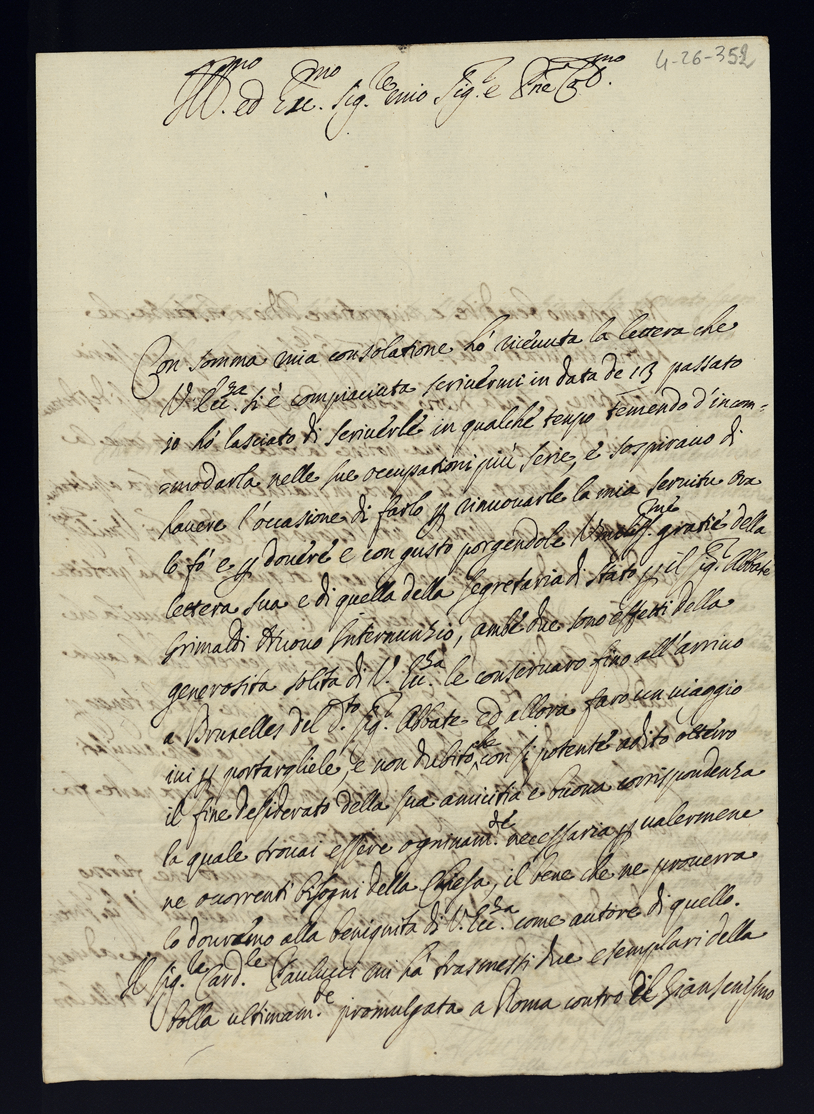 4-26-352
Ill.mo ed Ecc.mo Sig.re mio Sig.r e Pne Col.mo
Con somma mia consolatione hó riceuuta la lettera che
V. Ecc.za si é compiaciuta scriuermi in data de 13 passato
io hó lasciato di scriuerle in qualche tempo temendo d'incom=
=modarla nelle sue occupationi piú serie, é sospirauo di
hauere l'occasione di farlo p rinuouarle la mia seruitu ora
lo fó e p douere e con gusto porgendole grazie della
lettera sua e di quella della Segretaria di Stato p il Sig.r Abbate
Grimaldi Nuouo Internunzio, ambé due sono effetti della
generosita solita di V. Ecc.za le conseruaro fino all'arriuo
a Bruxelles del d.to Sig.r Abbate ed allora faro un uiaggio
iui p portargliele, e non dubito che con si potente adito otterro
il fine desiderato della sua amicitia e buona corrispondenza
la quale trouai essere ogninam.te necessaria p ualermene
ne ocorrenti bisogni della Chiesa, il bene che ne prouerra
lo douremo alla benignita di V. Ecc.za come autore di quello.
Il Sig.re Card.le Paulucci mi há trasmessi due esemplari della
bolla ultimam.te promulgata a Roma contro il Giansenismo